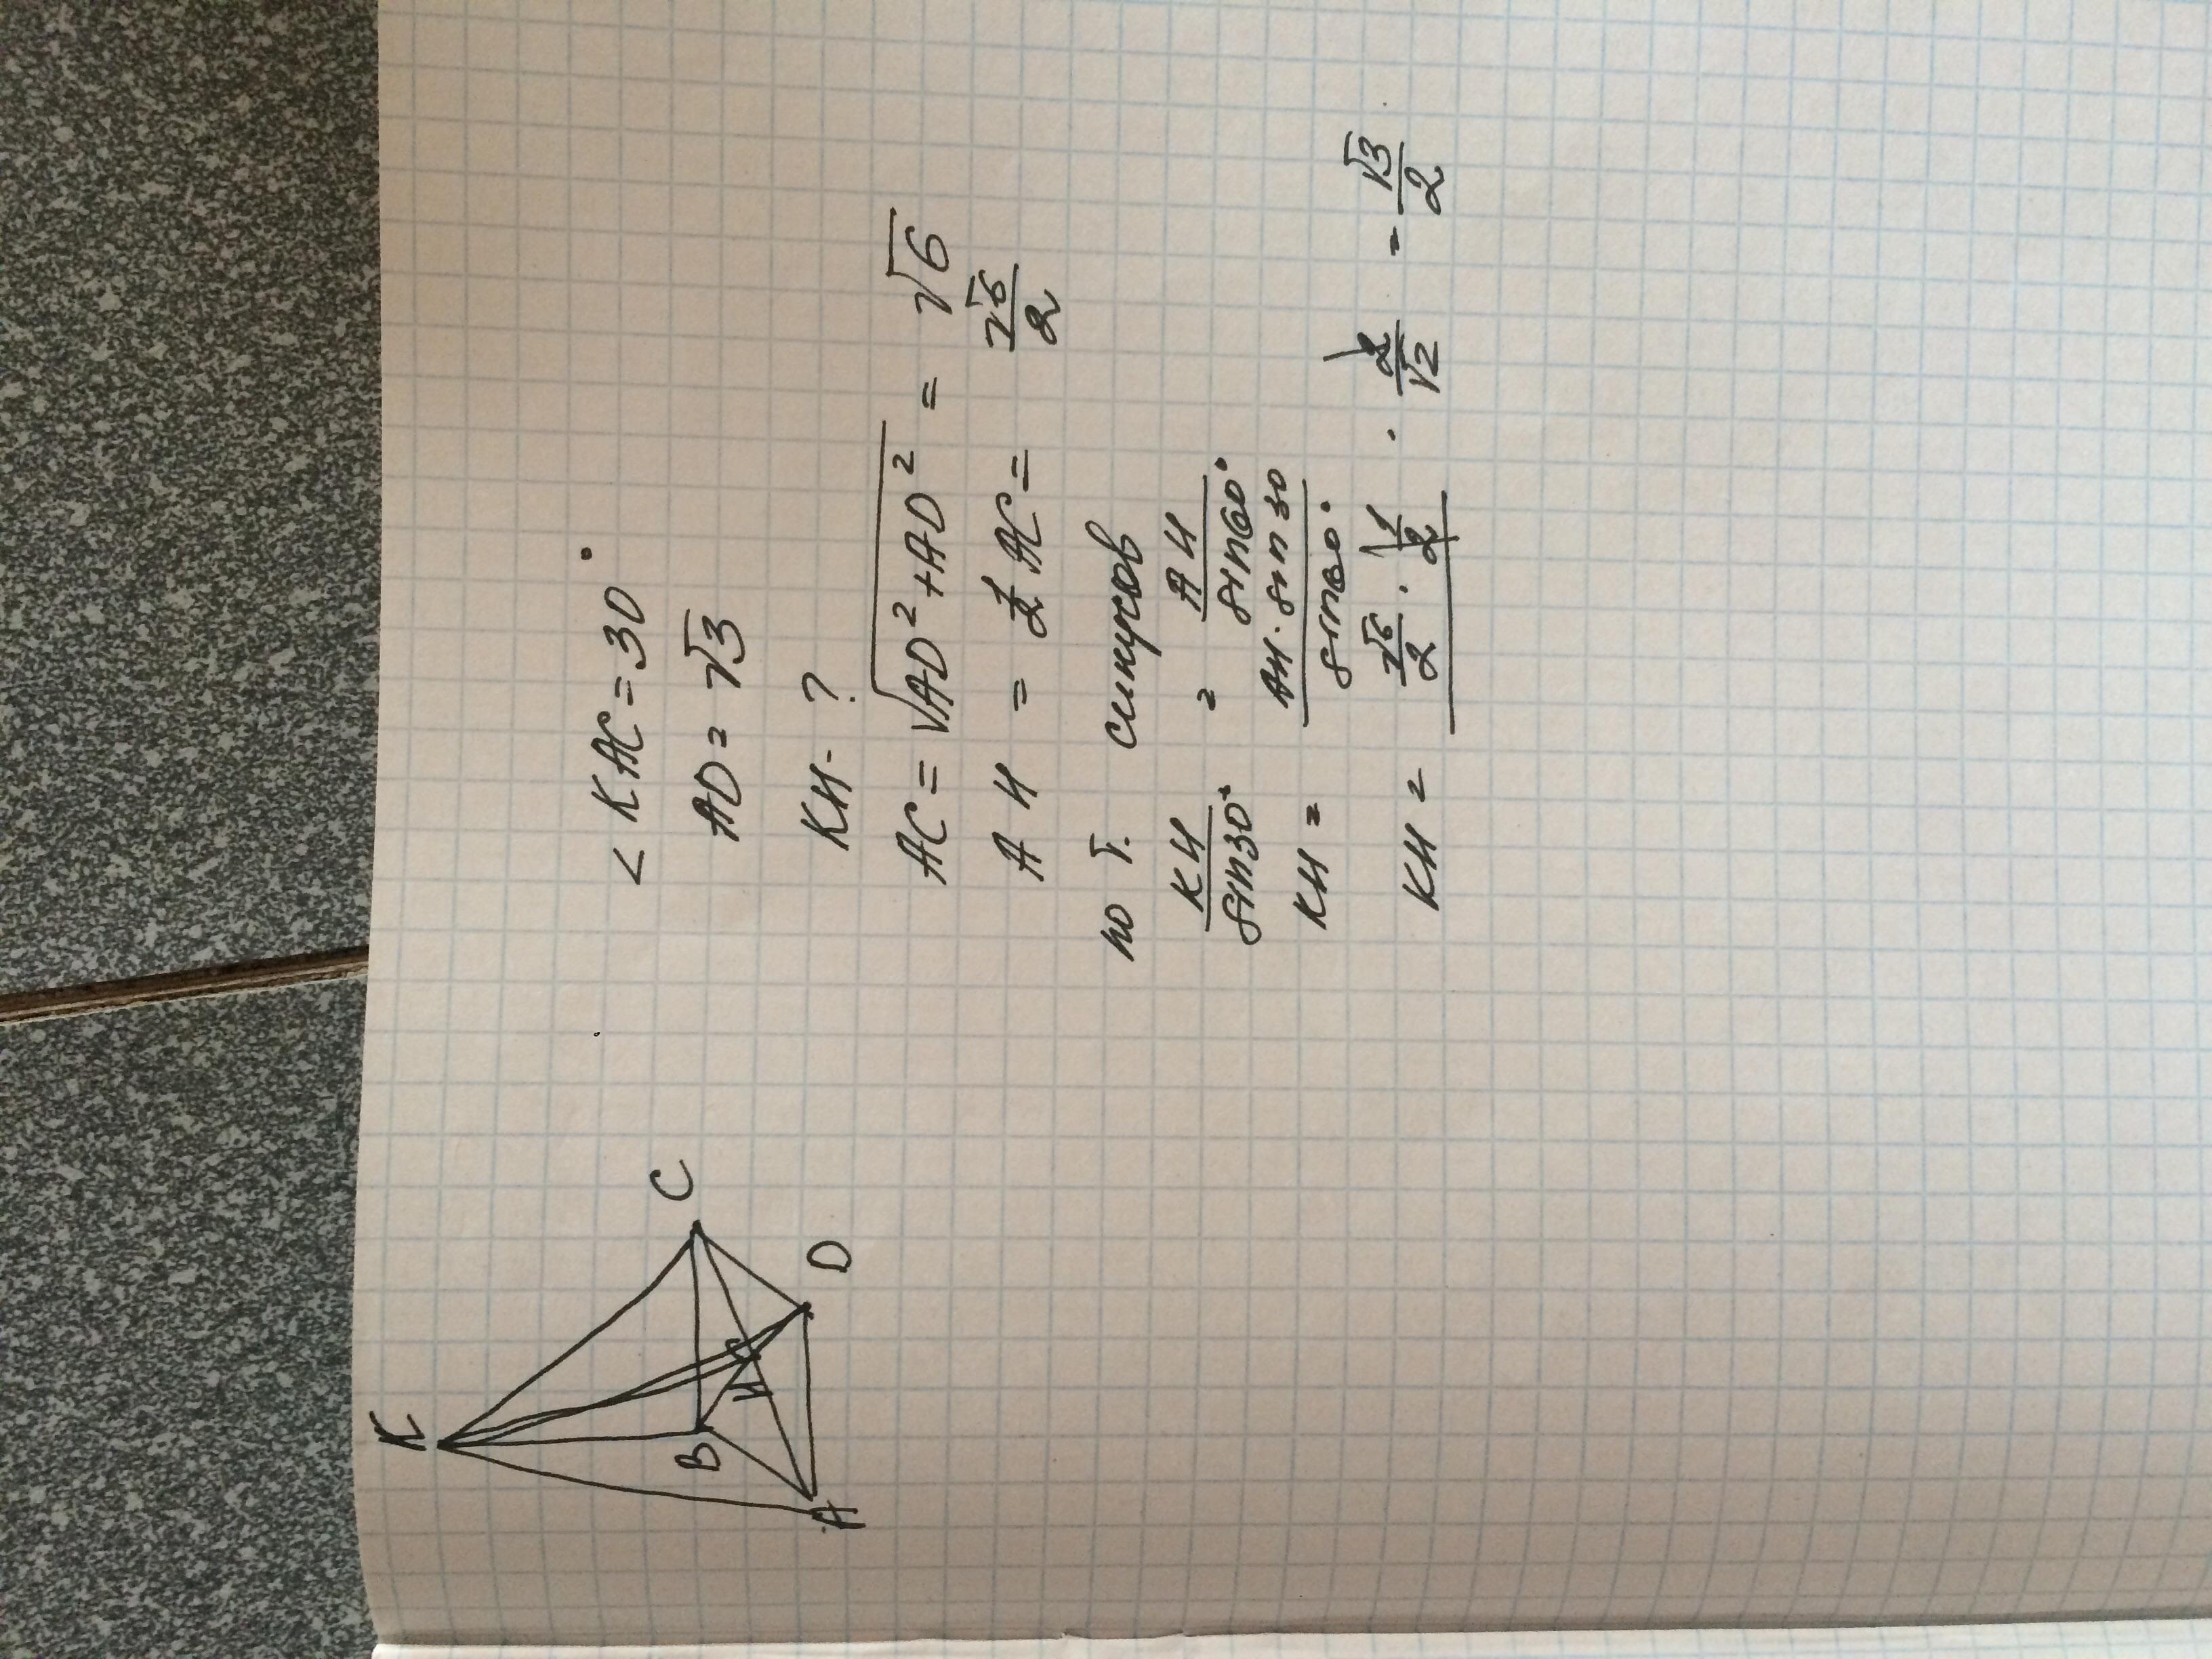 K
B
C
H
A
D
< KAC = 30°
AD = √3
KH - ?
AC = √AD² + AD² = √6
AH = ½ AC = √6/2
по т. синусов
KH/sin30° = AH/sin60°
KH = AH · sin30/sin60°
KH = √6/2 · 1/2 · 2/√2 = √3/2